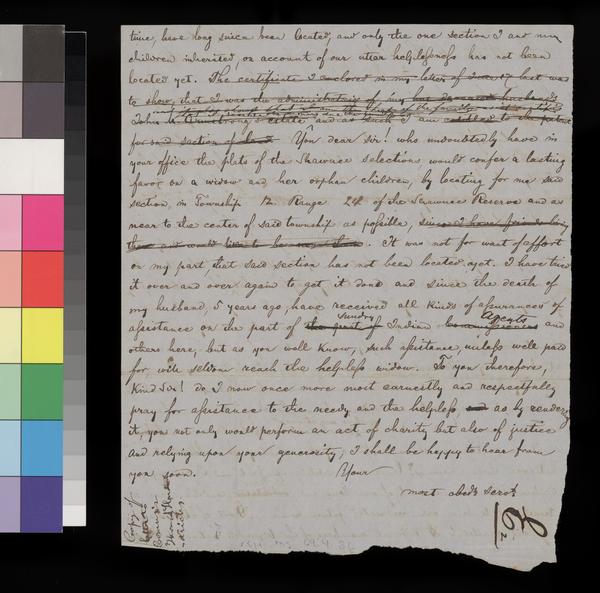 time, have long since been located, and only the one section I and my
children inherited, on account of our utter helplessness has not been
located yet. The certificate I enclosed in my letter of June 17 last was
to show, that I was the administratrix of my
John estate and as such I am entitled to the patent
for said section of land. You dear sir! who undoubtedly have in
your office the plats of the Shawnee selection would confer a lasting
favor on a widow and her orphan children, by locating for me said
section, in Township 12. Range 24 of the Shawnee Reserve and as
near to the center of said township as possible, since I have friends living
there and would like to be near them. It was not for want of effort
on my part, that said section has not been located yet. I have tried
it over and over again to get it done and since the death of
my husband, 5 years ago, have received all kinds of assurances of
sundry Agents
assistance on the part of the part of Indian and
others here, but as you well know, such assistance, unless well paid
for will seldom reach the helpless widow. To you therefore,
kind Sir! do I now once more most earnestly and respectfully
pray for assistance to the needy and the helpless, and as by rendering
it, you not only would perform an act of charity but also of justice
and relying upon your generosity, I shall be happy to hear from
you soon. Your
most obedt servt
Copy of